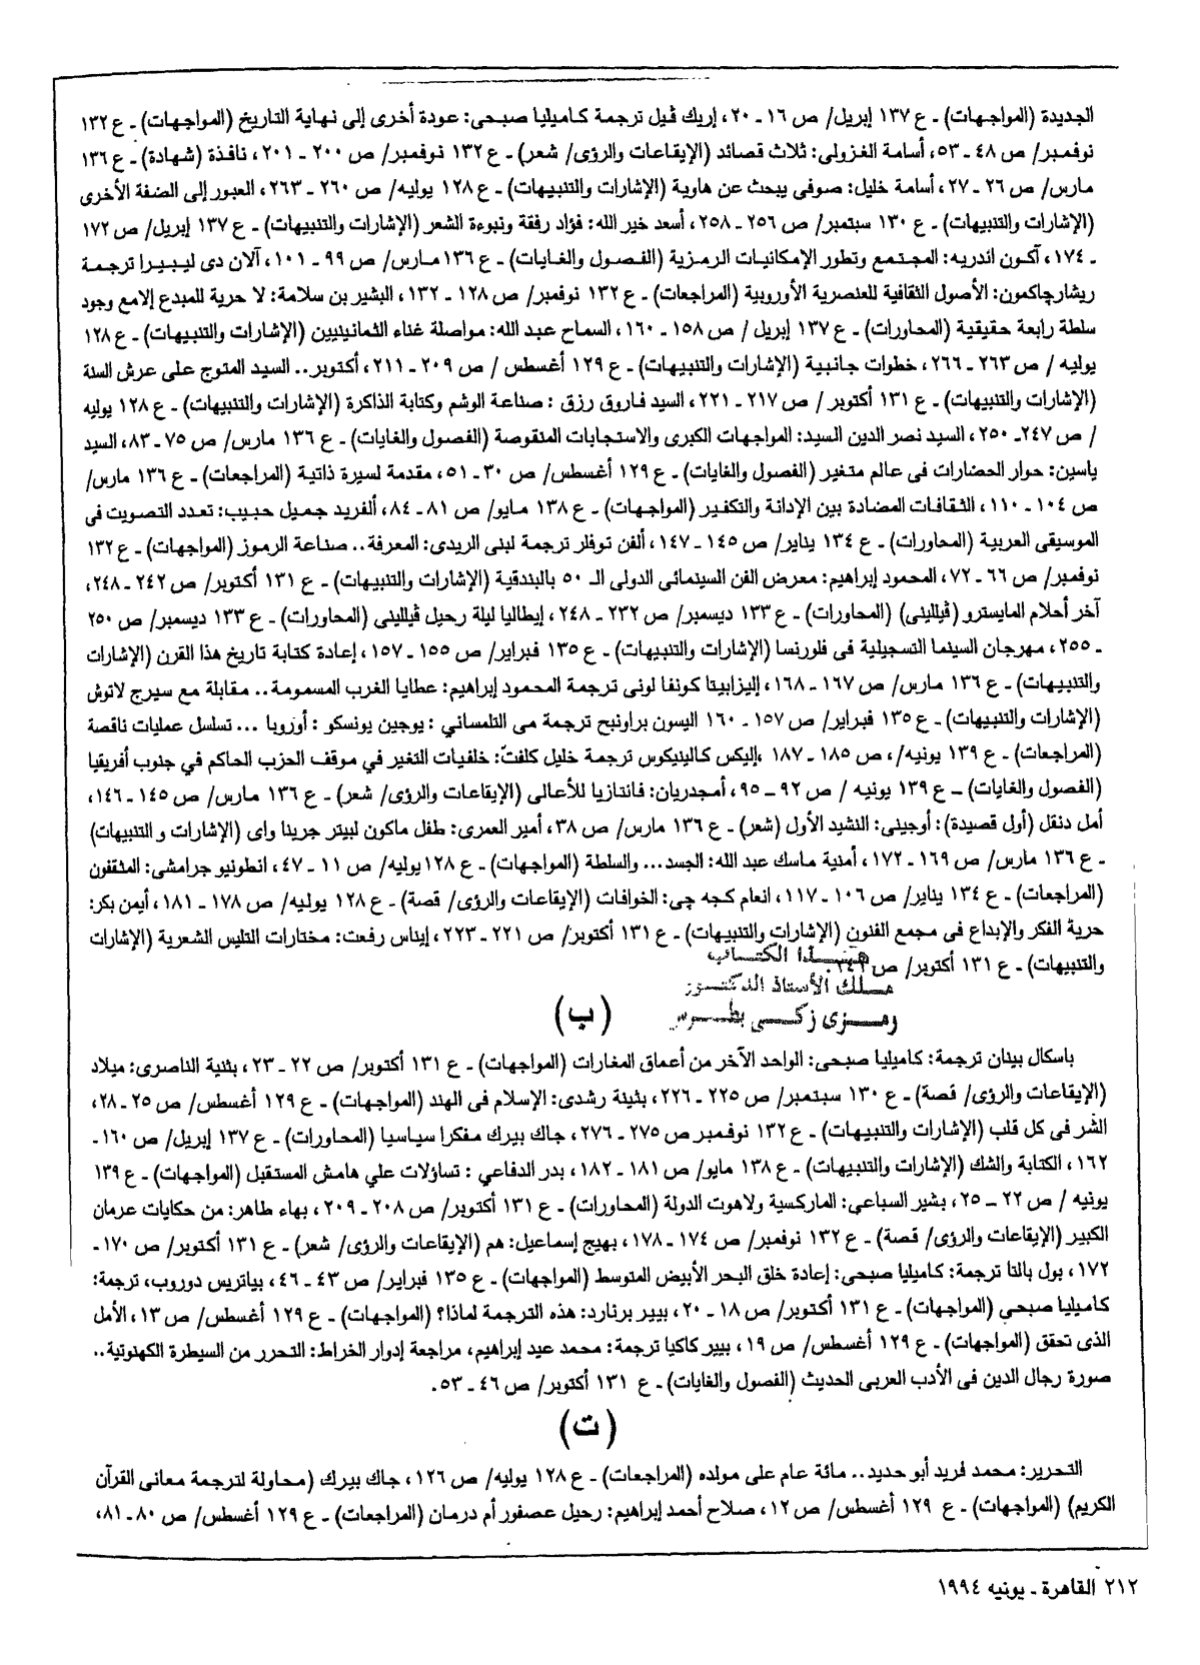 الجديدة (المواجهات) ـ ع ١٣٧ إبريل/ ص ١٦ ـ ٢٠، إريك ڤيل ترجمة كاميليا صبحى: عودة أخرى إلى نهاية التاريخ (المواجهات) ـ ع ١٣٢
نوفمبر/ ص ٤٨ ـ ٥٣، أسامة الغزولى: ثلاث قصائد (الإيقاعات والرؤى/ شعر) ـ ع ١٣٢ نوفمبر/ ص ٢٠٠ ـ ٢٠١، نافذة (شهادة) ـ ع ١٣٦
مارس/ ص ٢٦ ـ ٢٧، أسامة خليل: صوفى يبحث عن هاوية (الإشارات والتنبيهات) ـ ع ١٢٨ يوليه/ ص ٢٦٠ ـ ٢٦٣، العبور إلى الضفة الأخرى
(الإشارات والتنبيهات) ـ ع ١٣٠ سبتمبر/ ص ٢٥٦ ـ ٢٥٨، أسعد خير الله: فؤاد رفقة ونبوءة الشعر (الإشارات والتنبيهات) ـ ع ١٣٧ إبريل/ ص ١٧٢
ـ ١٧٤، آكون اندريه: المجتمع وتطور الإمكانيات الرمزية (الفصول والغايات) ـ ع ١٣٦ مارس/ ص ٩٩ ـ ١٠١، آلان دى ليبيرا ترجمة
ريشارچاكمون: الأصول الثقافية للعنصرية الأوروبية (المراجعات) ـ ع ١٣٢ نوفمبر/ ص ١٢٨ ـ ١٣٢، البشير بن سلامة: لا حرية للمبدع إلامع وجود
سلطة رابعة حقيقية (المحاورات) ـ ع ١٣٧ إبريل / ص ١٥٨ ـ ١٦٠، السماح عبد الله: مواصلة غناء الثمانينيين (الإشارات والتنبيهات) ـ ع ١٢٨
يوليه / ص ٢٦٣ ـ ٢٦٦، خطوات جانبية (الإشارات والتنبيهات) ـ ع ١٢٩ أغسطس / ص ٢٠٩ ـ ٢١١، أكتوبر.. السيد المتوج على عرش السنة
(الإشارات والتنبيهات) ـ ع ١٣١ أكتوبر / ص ٢١٧ ـ ٢٢١، السيد فاروق رزق : صناعة الوشم وكتابة الذاكرة (الإشارات والتنبيهات) ـ ع ١٢٨ يوليه
/ ص ٢٤٧ـ ٢٥٠، السيد نصر الدين السيد: المواجهات الكبرى والاستجابات المنقوصة (الفصول والغايات) ـ ع ١٣٦ مارس/ ص ٧٥ ـ ٨٣، السيد
ياسين: حوار الحضارات فى عالم متغير (الفصول والغايات) ـ ع ١٢٩ أغسطس/ ص ٣٠ ـ ٥١، مقدمة لسيرة ذاتية (المراجعات) ـ ع ١٣٦ مارس/
ص ١٠٤ ـ ١١٠، الثقافات المضادة بين الإدانة والتكفير (المواجهات) ـ ع ١٣٨ مايو/ ص ٨١ ـ ٨٤، ألفريد جميل حبيب: تعدد التصويت فى
الموسيقى العربية (المحاورات) ـ ع ١٣٤ يناير/ ص ١٤٥ ـ ١٤٧، ألفن توفلر ترجمة لبنى الريدى: المعرفة.. صناعة الرموز (المواجهات) ـ ع ١٣٢
نوفمبر/ ص ٦٦ ـ ٧٢، المحمود إبراهيم: معرض الفن السينمائى الدولى الـ ٥٠ بالبندقية (الإشارات والتنبيهات) ـ ع ١٣١ أكتوبر/ ص ٢٤٢ ـ ٢٤٨،
آخر أحلام المايسترو (ڤيللينى) (المحاورات) ـ ع ١٣٣ ديسمبر/ ص ٢٣٢ ـ ٢٤٨، إيطاليا ليلة رحيل ڤيللينى (المحاورات) ـ ع ١٣٣ ديسمبر/ ص ٢٥٠
ـ ٢٥٥، مهرجان السينما التسجيلية فى فلورنسا (الإشارات والتنبيهات) ـ ع ١٣٥ فبراير/ ص ١٥٥ ـ ١٥٧، إعادة كتابة تاريخ هذا القرن (الإشارات
والتنبيهات) ـ ع ١٣٦ مارس/ ص ١٦٧ ـ ١٦٨، إليزابيتا كونفا لونى ترجمة المحمود إبراهيم: عطايا الغرب المسمومة.. مقابلة مع سيرج لاتوش
(الإشارات والتنبيهات) ـ ع ١٣٥ فبراير/ ص ١٥٧ ـ ١٦٠ اليسون براونبح ترجمة مى التلمساني : يوجين يونسكو : أوروبا ... تسلسل عمليات ناقصة
(المراجعات) ـ ع ١٣٩ يونيه/، ص ١٨٥ ـ ١٨٧ ،إليكس كالينيكوس ترجمة خليل كلفت: خلفيات التغير في موقف الحزب الحاكم في جنوب أفريقيا
(الفصول والغايات) ـ ع ١٣٩ يونيه / ص ٩٢ ـ ٩٥، أمجدريان: فانتازيا للأعالى (الإيقاعات والرؤى/ شعر) ـ ع ١٣٦ مارس/ ص ١٤٥ ـ ١٤٦،
أمل دنقل (أول قصيدة): أوجينى: النشيد الأول (شعر) ـ ع ١٣٦ مارس/ ص ٣٨، أمير العمرى: طفل ماكون لبيتر جرينا واى (الإشارات و التنبيهات)
ـ ع ١٣٦ مارس/ ص ١٦٩ ـ ١٧٢، أمنية ماسك عبد الله: الجسد... والسلطة (المواجهات) ـ ع ١٢٨ يوليه/ ص ١١ ـ ٤٧، انطونيو جرامشى: المثقفون
(المراجعات) ـ ع ١٣٤ يناير/ ص ١٠٦ ـ ١١٧، انعام كجه چى: الخوافات (الإيقاعات والرؤى/ قصة) ـ ع ١٢٨ يوليه/ ص ١٧٨ ـ ١٨١، أيمن بكر:
حرية الفكر والإبداع فى مجمع الفنون (الإشارات والتنبيهات) ـ ع ١٣١ أكتوبر/ ص ٢٢١ ـ ٢٢٣، إيناس رفعت: مختارات التليس الشعرية (الإشارات
والتنبيهات) ـ ع ١٣١ أكتوبر/ ص
هـذا الكتـاب
مـلك الأستاذ الدكتـور
رمـزى زكـى بطـرس
(ب)
باسكال بينان ترجمة: كاميليا صبحى: الواحد الآخر من أعماق المغارات (المواجهات) ـ ع ١٣١ أكتوبر/ ص ٢٢ ـ ٢٣، بثنية الناصرى: ميلاد
(الإيقاعات والرؤى/ قصة) ـ ع ١٣٠ سبتمبر/ ص ٢٢٥ ـ ٢٢٦، بثينة رشدى: الإسلام فى الهند (المواجهات) ـ ع ١٢٩ أغسطس/ ص ٢٥ ـ ٢٨،
الشر فى كل قلب (الإشارات والتنبيهات) ـ ع ١٣٢ نوفمبر ص ٢٧٥ ـ ٢٧٦، جاك بيرك مفكرا سياسيا (المحاورات) ـ ع ١٣٧ إبريل/ ص ١٦٠ ـ
١٦٢، الكتابة والشك (الإشارات والتنبيهات) ـ ع ١٣٨ مايو/ ص ١٨١ ـ ١٨٢، بدر الدفاعي : تساؤلات علي هامش المستقبل (المواجهات) ـ ع ١٣٩
يونيه / ص ٢٢ ـ ٢٥، بشير السباعى: الماركسية ولاهوت الدولة (المحاورات) ـ ع ١٣١ أكتوبر/ ص ٢٠٨ ـ ٢٠٩، بهاء طاهر: من حكايات عرمان
الكبير (الإيقاعات والرؤى/ قصة) ـ ع ١٣٢ نوفمبر/ ص ١٧٤ ـ ١٧٨، بهيج إسماعيل: هم (الإيقاعات والرؤى/ شعر) ـ ع ١٣١ أكتوبر/ ص ١٧٠ ـ
١٧٢، بول بالتا ترجمة: كاميليا صبحى: إعادة خلق البحر الأبيض المتوسط (المواجهات) ـ ع ١٣٥ فبراير/ ص ٤٣ ـ ٤٦، بياتريس دوروب، ترجمة:
كاميليا صبحي (المواجهات) ـ ع ١٣١ أكتوبر/ ص ١٨ ـ ٢٠، بيير برنارد: هذه الترجمة لماذا؟ (المواجهات) ـ ع ١٢٩ أغسطس/ ص ١٣، الأمل
الذى تحقق (المواجهات) ـ ع ١٢٩ أغسطس/ ص ١٩، بيير كاكيا ترجمة: محمد عيد إبراهيم، مراجعة إدوار الخراط: التحرر من السيطرة الكهنوتية..
صورة رجال الدين فى الأدب العربى الحديث (الفصول والغايات) ـ ع ١٣١ أكتوبر/ ص ٤٦ ـ ٥٣.
(ت)
التحرير: محمد فريد أبو حديد.. مائة عام على مولده (المراجعات) ـ ع ١٢٨ يوليه/ ص ١٢٦، جاك بيرك (محاولة لترجمة معانى القرآن
الكريم) (المواجهات) ـ ع ١٢٩ أغسطس/ ص ١٢، صلاح أحمد إبراهيم: رحيل عصفور أم درمان (المراجعات) ـ ع ١٢٩ أغسطس/ ص ٨٠ ـ ٨١،
٢١٢ القاهرة ـ يونيه ١٩٩٤